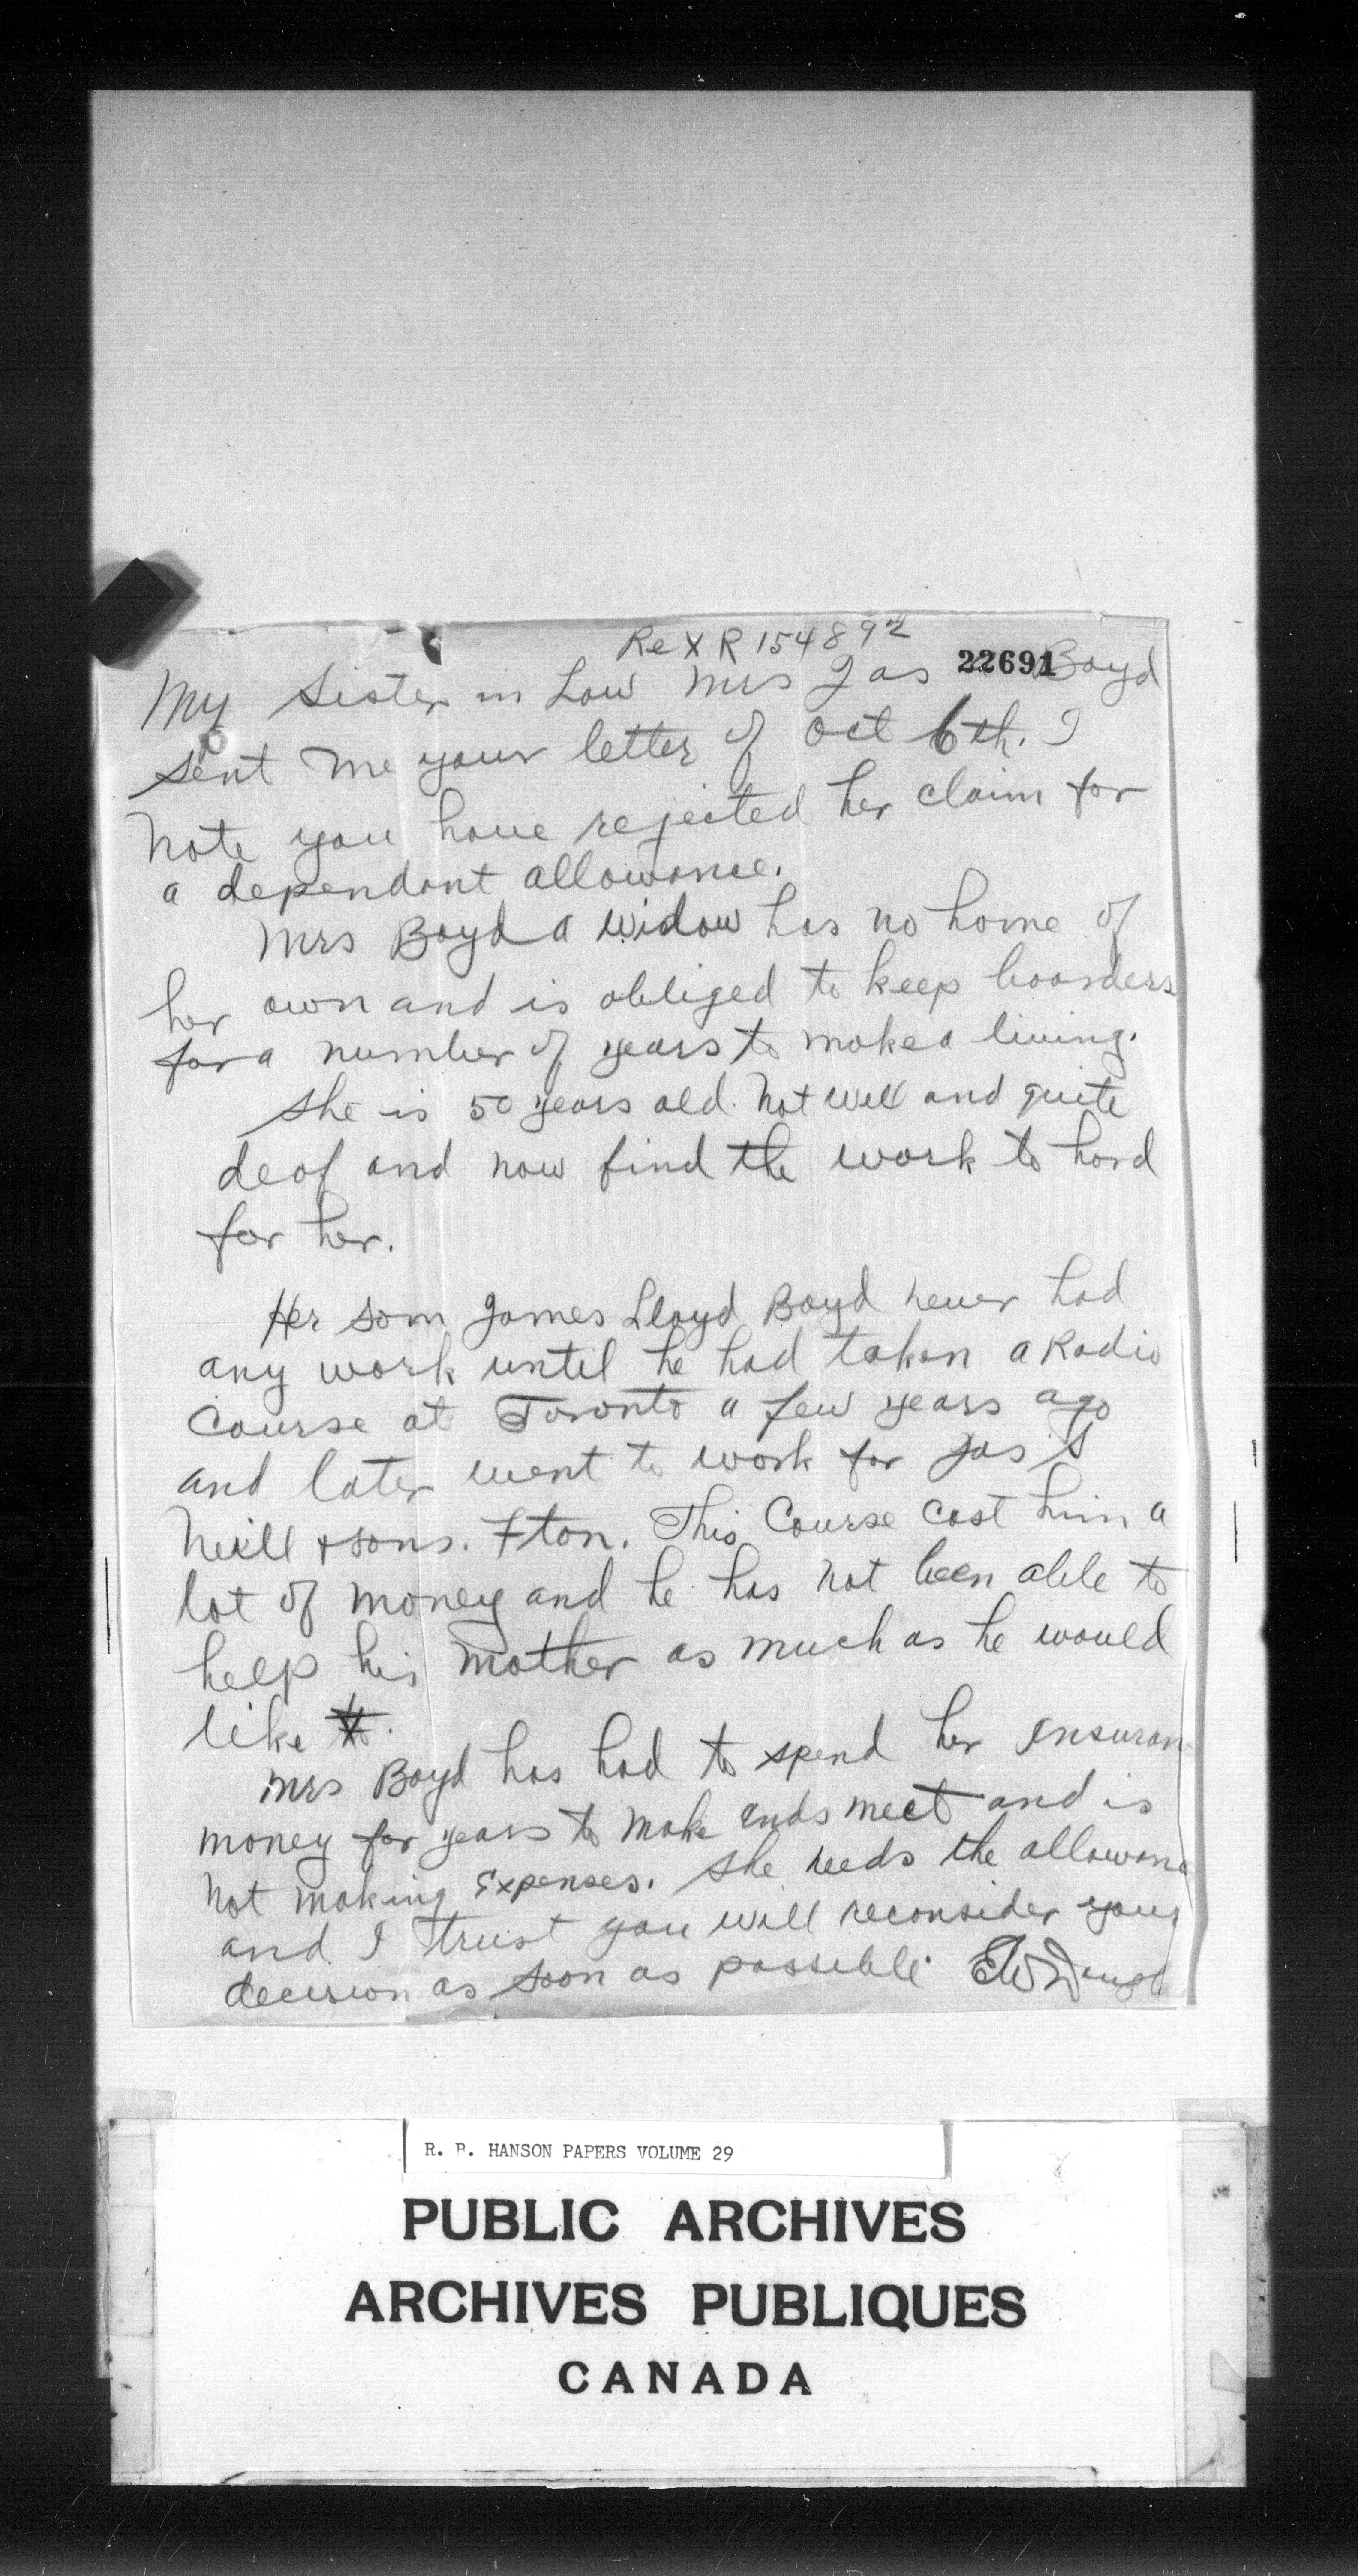 Re X R 154892
22691
My Sister in Law Mrs Jas Boyd
sent me your letter of Oct 6th. I
note you have rejected her claim for
a dependant allowance.
Mrs Boyd a widow has no home of
her own and is obliged to keep boarders
for a number of years to make a living.
She is 50 years old. Not well and quite
deaf and now find the work to hard
for her.
Her son James Lloyd Boyd never had
any work until he had taken a Radio
Course at Toronto a few years ago
and later went to work for Jas S
Neill & sons. Fton. This Course cost him a
lot of money and he has not been able to
help his mother as much as he would
like to.
Mrs Boyd has had to spend her insuran
money for years to make ends meet and is
not making expenses. She needs the allowanc
and I trust you will reconsider your
decision as soon as possible
R. B. HANSON PAPERS VOLUME 29
PUBLIC ARCHIVES
ARCHIVES PUBLIQUES
CANADA